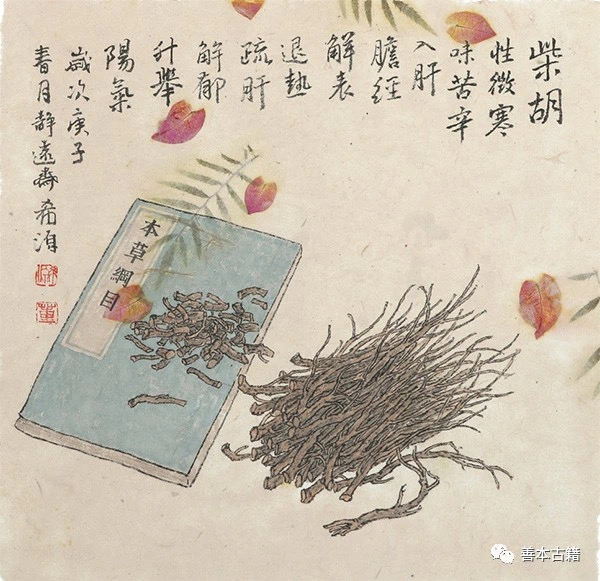 柴胡
性微寒
味苦辛
入肝
膽經
解表
退熱
疏肝
解郁
升舉
陽氣
歲次庚子
春月靜遠齋希洎
本草綱目
善本古籍